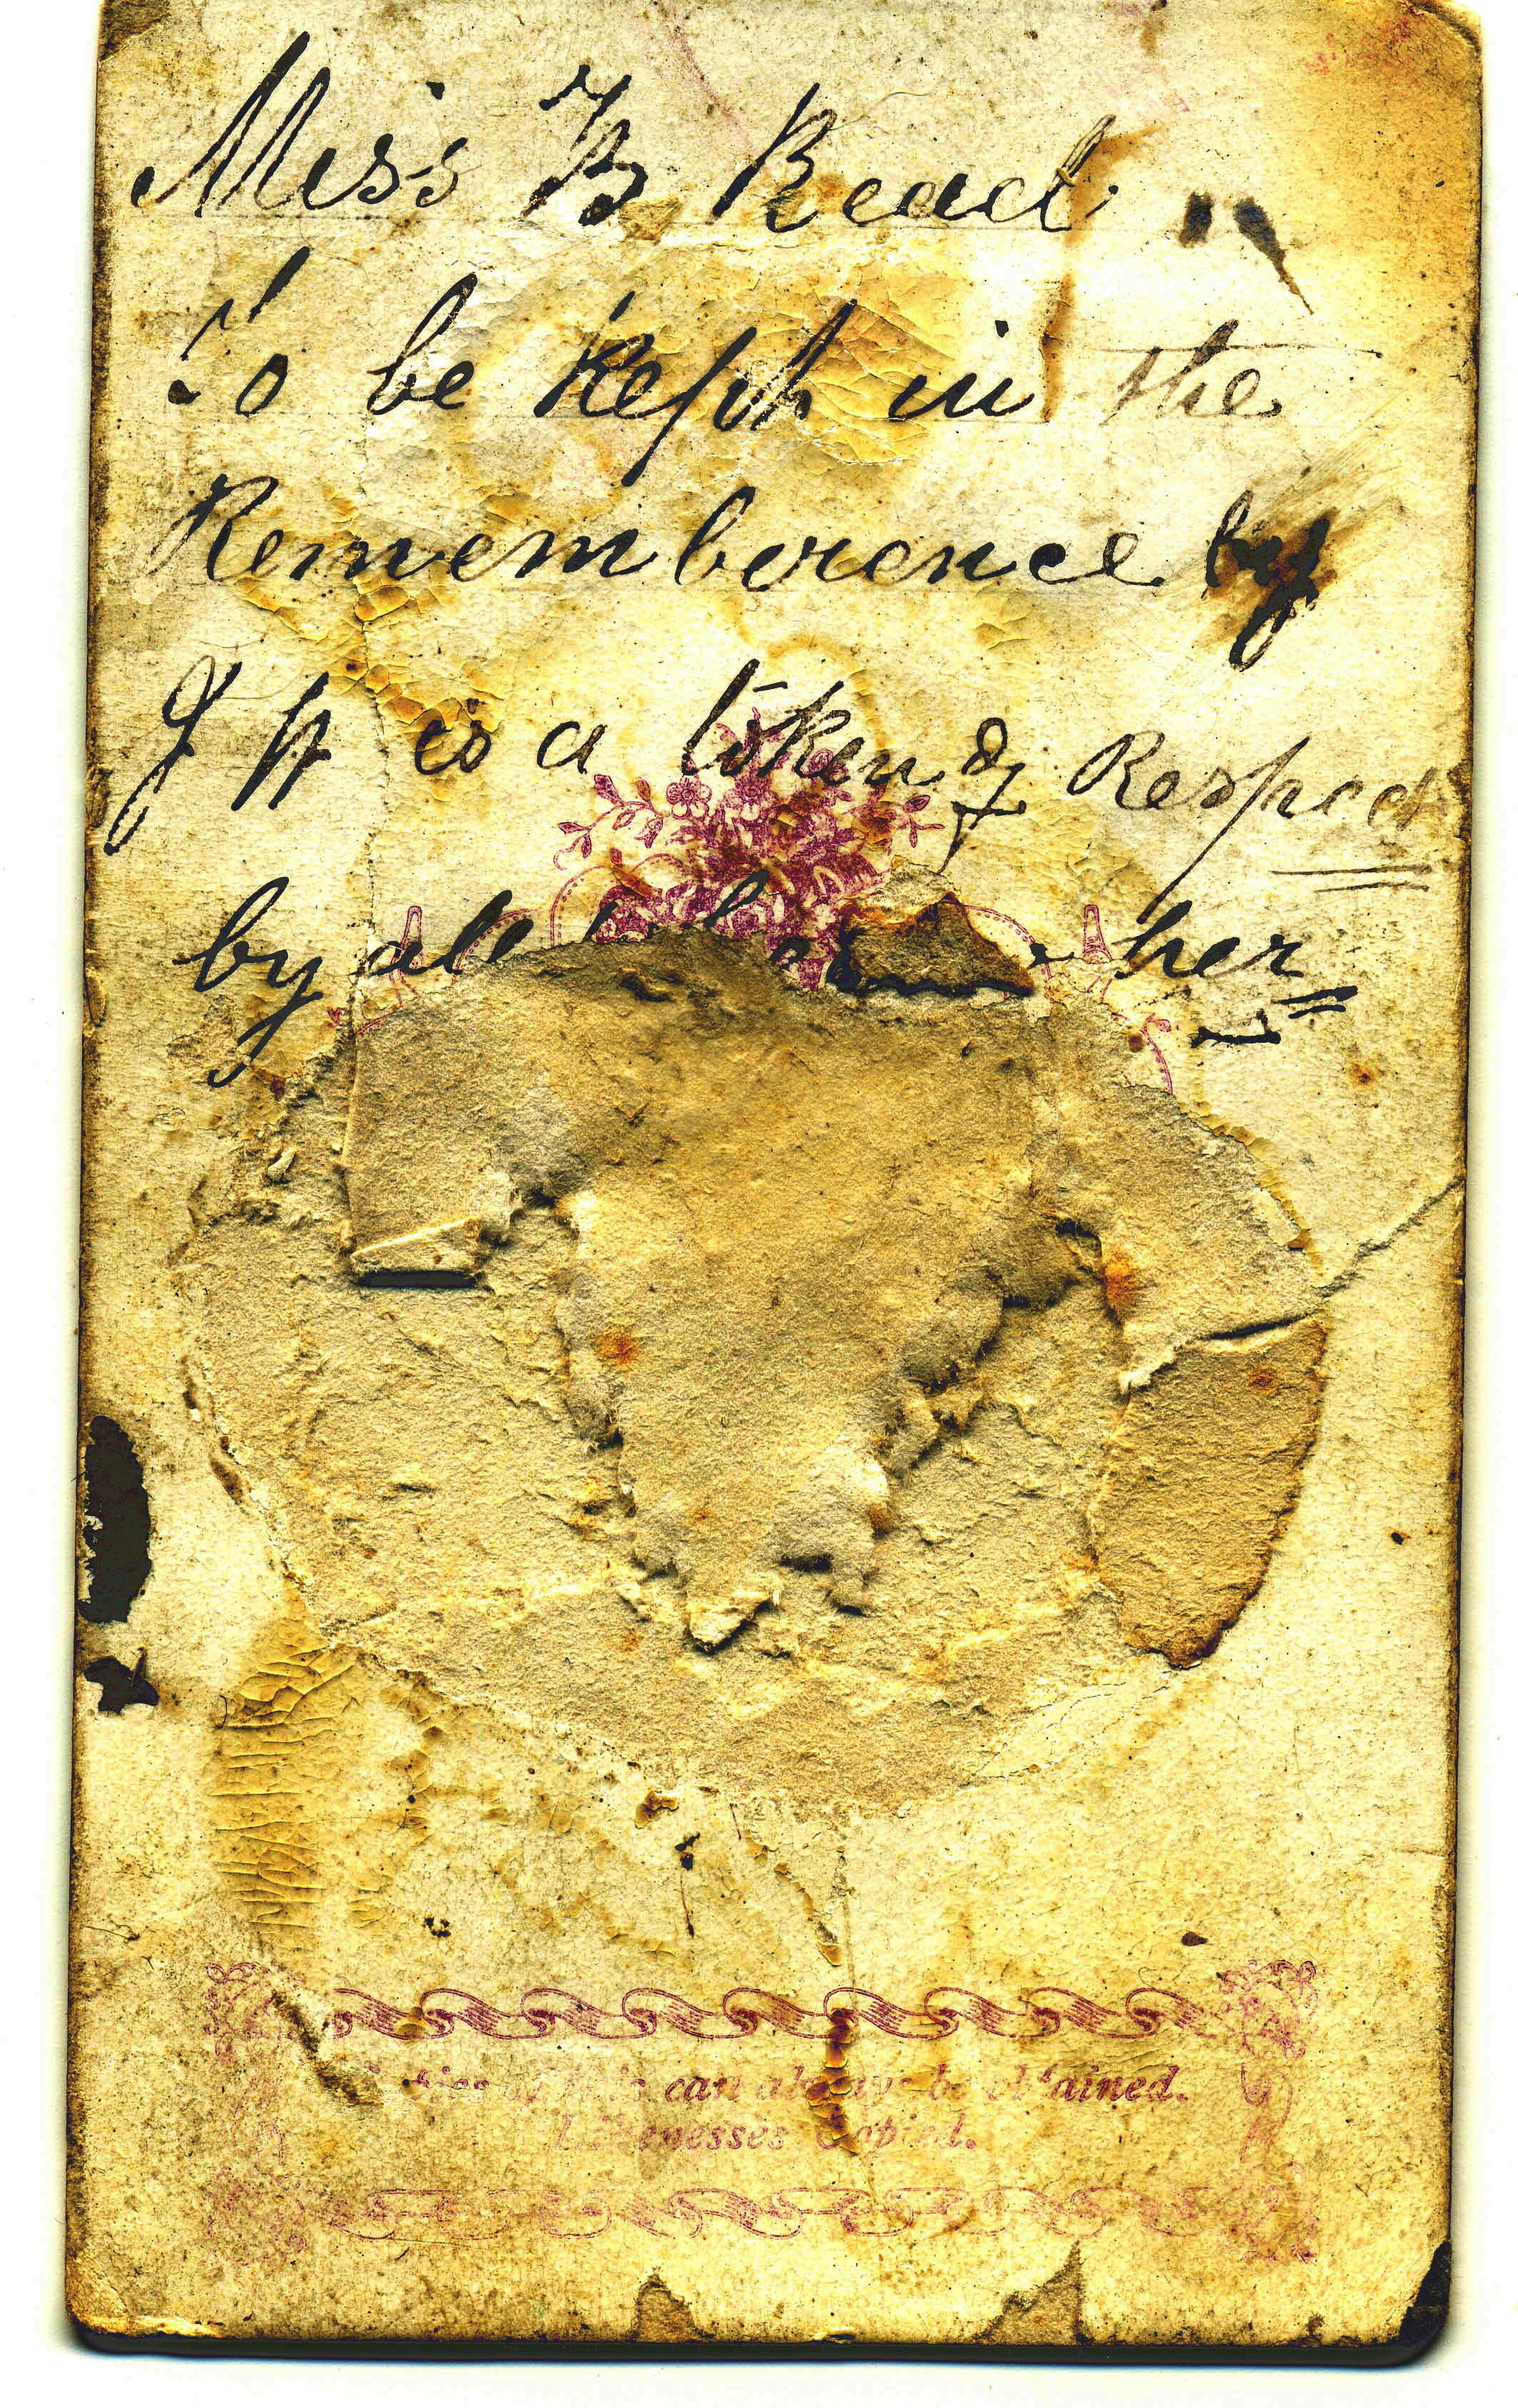 Miss B Read
to be Kept in the
Rememberence by
J H is a token of Respect
by all her
can always be obtained.
Likenesses Copied.